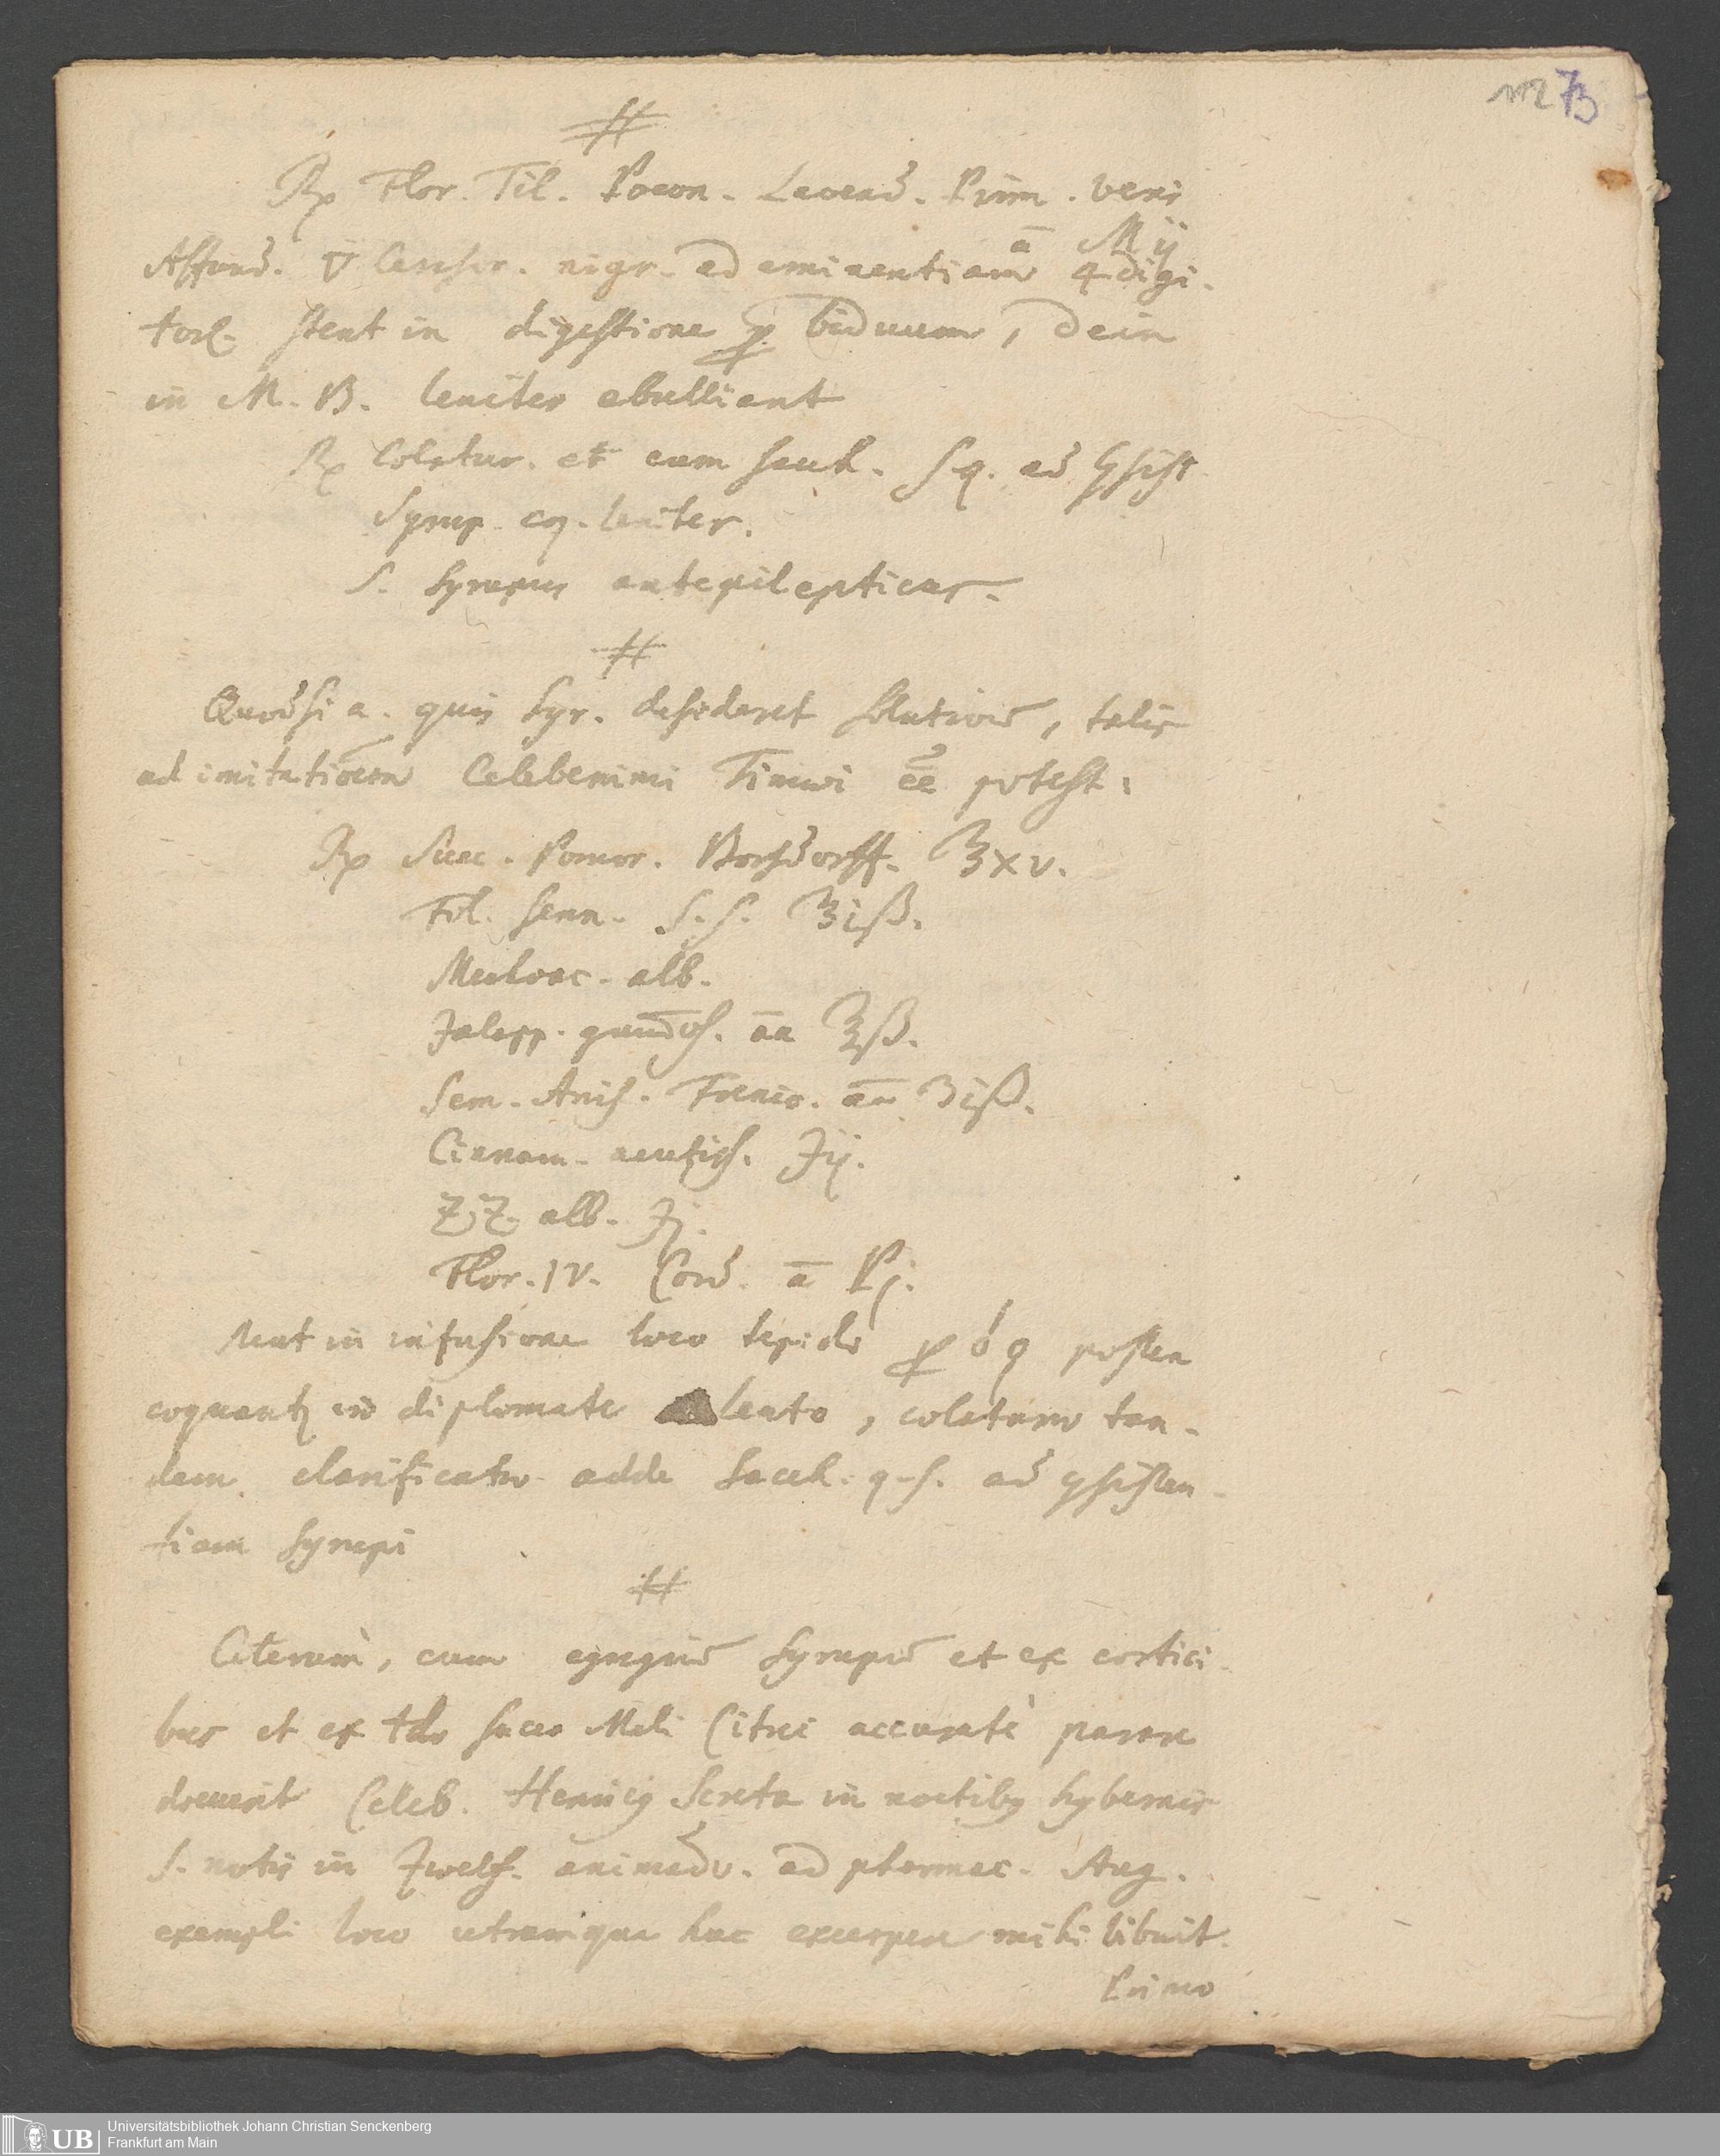 112 73
#
℞ Flor. Til. Poeon. Lavend. Prim. veris
ā M ij
Affund. ▽ Ceraser. nigr. ad eminentiam 4 digi-
tor. stent in digestione p biduum, dein
in M. B. leniter ebulliant
℞ Colatur. et cum sacch. s q. ad Consist
Syrup. coq. leniter.
S. Syrupus antepilepticus.
#
Quodsi a. quis Syr. desideret solutivum, talis
ad imitationem Celeberrimi Timaei ēe potest:
℞ Succ. Pomor. Borsdorff. ℥xv.
Fol. Senn. s. s. ℥iß.
Mechoac. alb.
Jalapp. gummos. āa ℥ß.
Sem. Anis. Foenic. āa ʒiß.
Cinnam. acutiss. ʒij.
ZZ. alb. ʒj.
Flor. IV. Cord. ā Pj.
Stent in infusione loco tepido p ⚨ postea
coquantur in diplomate lento, colaturae tan-
dem clarificatae adde Sacch. q. s. ad Consisten-
tiam Syrupi
#
Ceterum, cum egregium Syrupum et ex cortici-
bus et ex toto succo Mali Citrei accuratè parare
docuerit Celeb. Henricus Screta in noctibus hybernis
s. notis in Zwelf. animadv. ad pharmac. Aug.
exempli loco utramque huc excerpere mihi libuit.
Primo
Universitätsbibliothek Johann Christian Senckenberg
Frankfurt am Main
UB